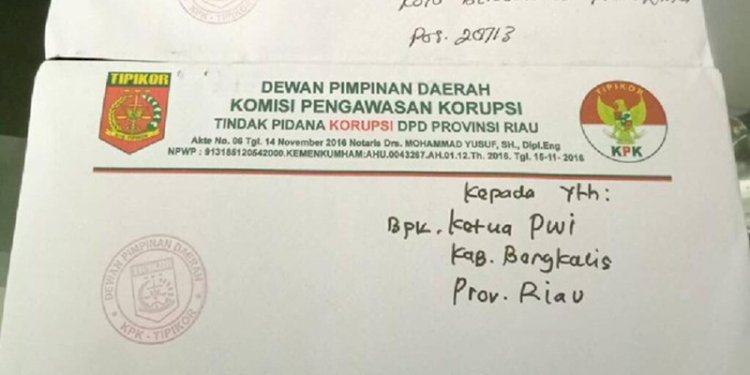 Pos. 20713
TIPIKOR
DEWAN PIMPINAN DAERAH
KOMISI PENGAWASAN KORUPSI
TINDAK PIDANA KORUPSI DPD PROVINSI RIAU
Akte No. 06 Tgl. 14 November 2016 Notaris Drs. MOHAMMAD YUSUF, SH., Dipl.Eng
NPWP : 913185120542000.KEMENKUMHAM:AHU.0043267.AH.01.12.Th. 2016. Tgl. 15-11-2016
TIPIKOR
KPK
Kepada Yth:
Bpk. Ketua PWI
Kab. Bengkalis
Prov. Riau
DEWAN PIMPINAN DAERAH
TIPIKOR
KPK - TIPIKOR